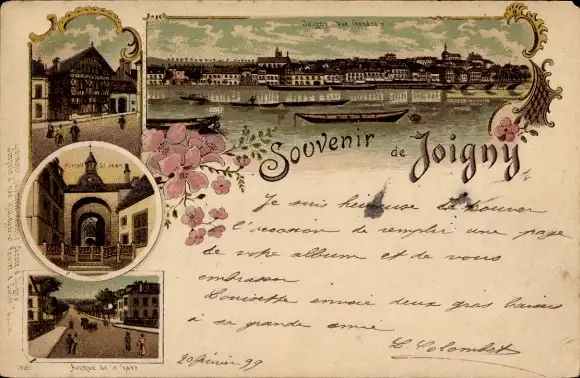 Joigny - Vue Générale
Souvenir de Joigny
Portail St Jean
Avenue de la Gare
Je suis heureuse de trouver
l'occasion de remplir une page
de votre album et de vous
embrasser
Louisette envoie deux gros baisers
à sa grande amie
L. Colombet
20 février 99